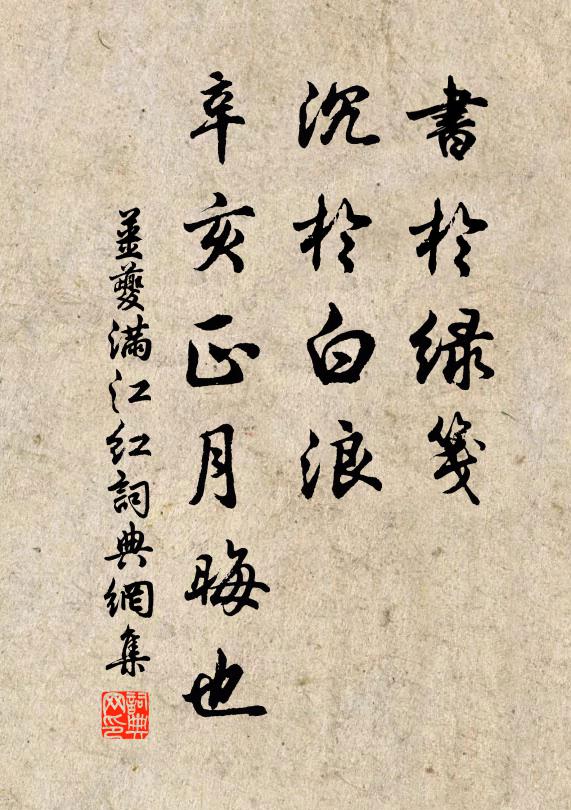 書於緑箋
沉於白浪
辛亥正月晦也
薑夔滿江紅詞典網集
詞典
网印